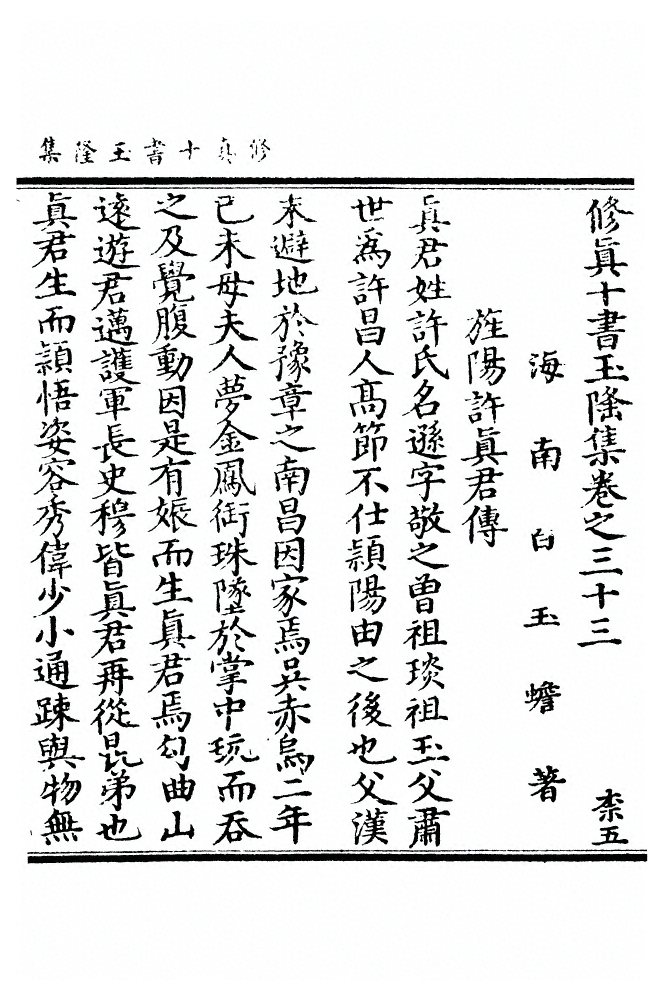 修真十書玉隆集
修真十書玉隆集卷之三十三 柰五
海南白玉蟾著
旌陽許真君傳
真君姓許氏名遜字敬之曾祖琰祖玉父肅
世為許昌人高節不仕頴陽由之後也父漢
末避地於豫章之南昌因家焉吳赤烏二年
己未母夫人夢金鳳銜珠墜於掌中玩而吞
之及覺腹動因是有娠而生真君焉勾曲山
遠遊君邁護軍長史穆皆真君再從昆弟也
真君生而頴悟姿容秀偉少小通踈與物無